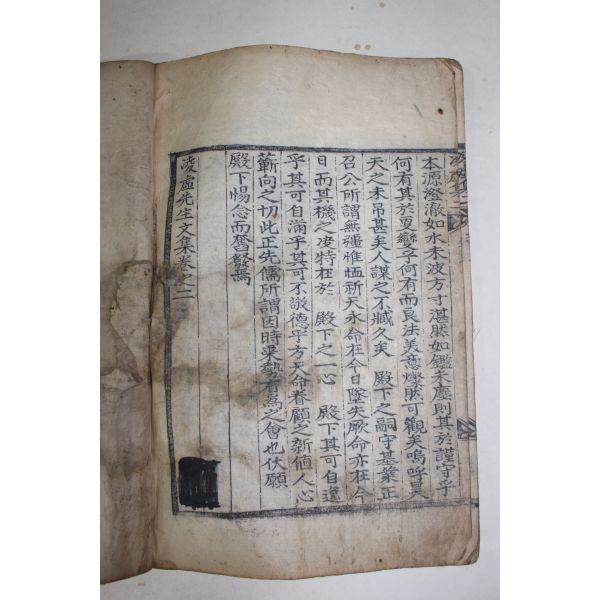 本源澄澈如水未波方寸湛然如鑑未塵則其於謹守乎
何有其於更變乎何有而良法美意燦然可觀矣嗚呼昊
天之未吊甚矣人謀之不臧久矣 殿下之嗣守基業正
召公所謂無疆惟恤新天永命在今日墜失厥命亦在今
日而其機之決特在於 殿下之一心 殿下其可自逸
乎其可自滿乎其可不敬德乎方天命眷顧之新値人心
蘄向之切此正先儒所謂因時乘勢有爲之會也伏願
殿下惕念而奮發焉
凌虛先生文集卷之二